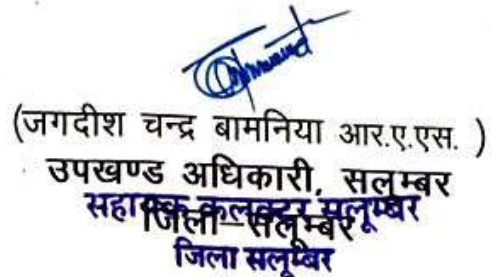 (जगदीश चन्द्र बामनिया आर.ए.एस. )
उपखण्ड अधिकारी, सलूम्बर
सहायक कलक्टर सलूम्बर
जिला–सलूम्बर
जिला सलूम्बर